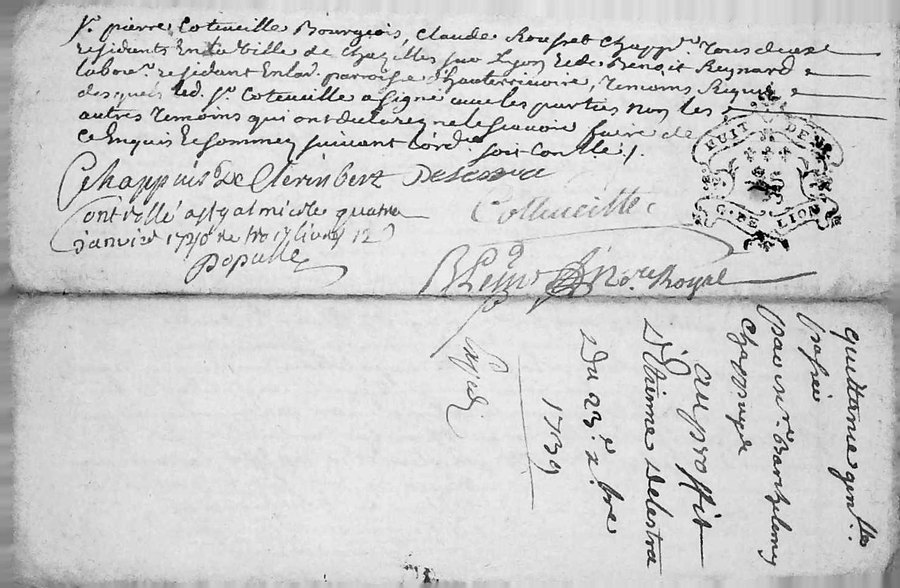 Sr. pierre Coteuville Bourgeois, Claude Rousset Chapp.r tous deux
residants En la Ville de Chazelles sur Lyon et de Benoit Reynard
labour. residant En lad. parroisse d'hauterivoire, temoins Requis
desquels led. Sr. Coteuville a signé avec les parties non les
autres temoins qui ont declaré ne le scavoir faire de
ce Enquis et sommez suivant l'ord. soit Conllé /.
Chappuis De Clerinbert Delestra
Controllé a St galmier le quatre Colleuville
janvier 1740 Re tro 17 livres 12 s
Populle
No.re Royal
HUIT DEN
G. DE LION
quittance gen.lle
passée
par m.re Barthelemy
Chappuys
au proffit
d'Etienne Delestra
Du 23.e x.bre
1739
Expedié